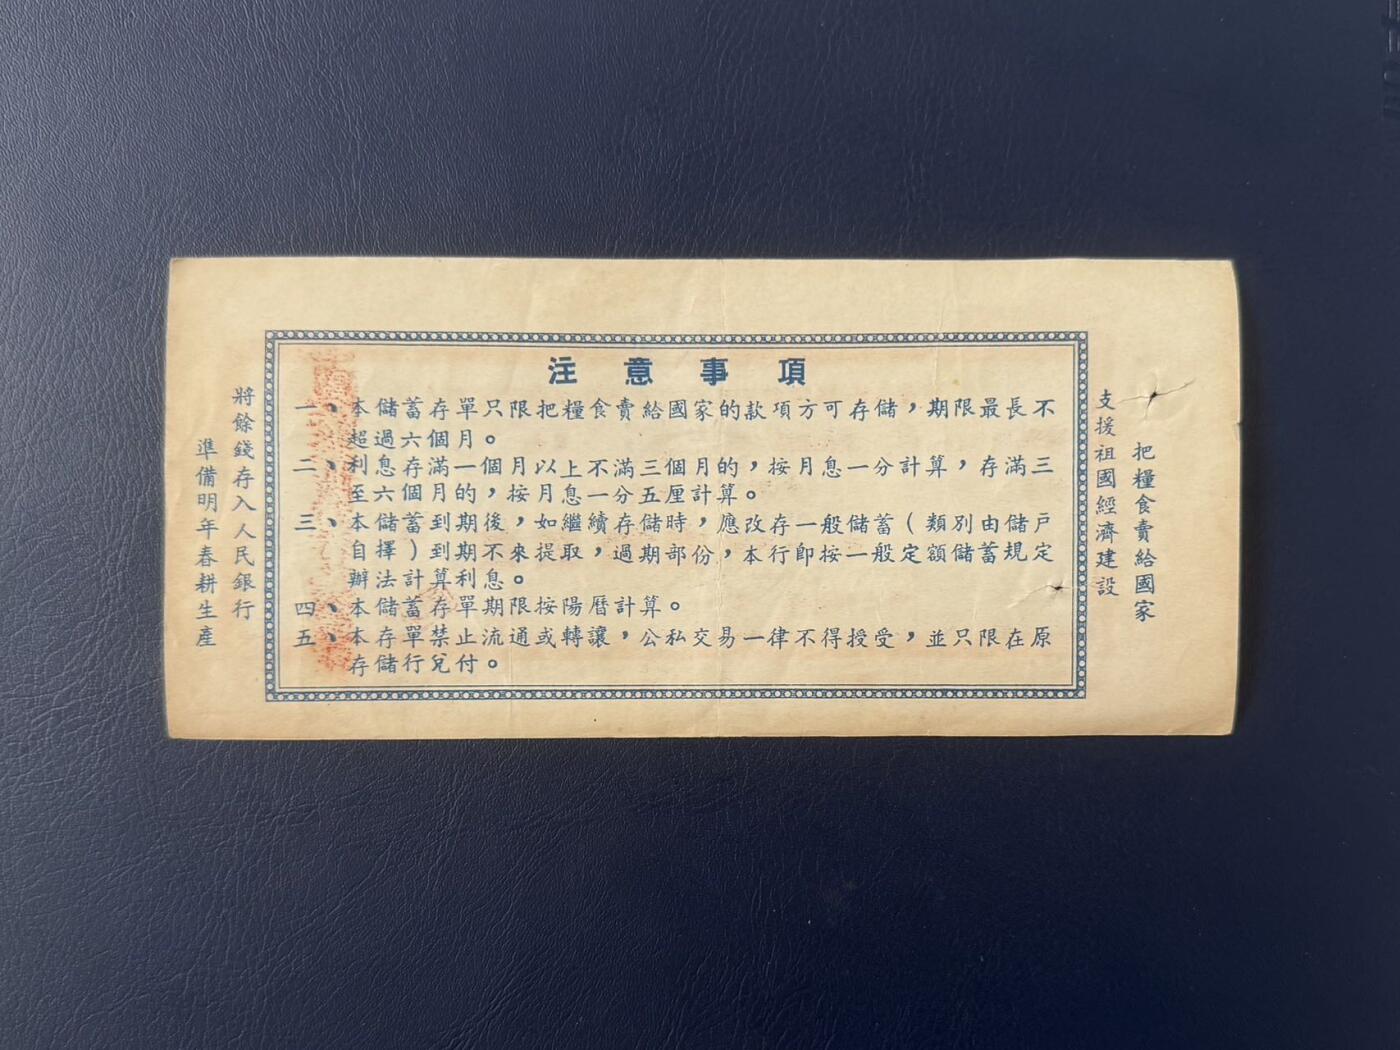 注意事項
一、本儲蓄存單只限把糧食賣給國家的款項方可存儲，期限最長不
超過六個月。
二、利息存滿一個月以上不滿三個月的，按月息一分計算，存滿三
至六個月的，按月息一分五厘計算。
三、本儲蓄到期後，如繼續存儲時，應改存一般儲蓄（類別由儲戶
自擇）到期不來提取，過期部份，本行即按一般定額儲蓄規定
辦法計算利息。
四、本儲蓄存單期限按陽曆計算。
五、本存單禁止流通或轉讓，公私交易一律不得授受，並只限在原
存儲行兌付。
把糧食賣給國家
支援祖國經濟建設
將餘錢存入人民銀行
準備明年春耕生產